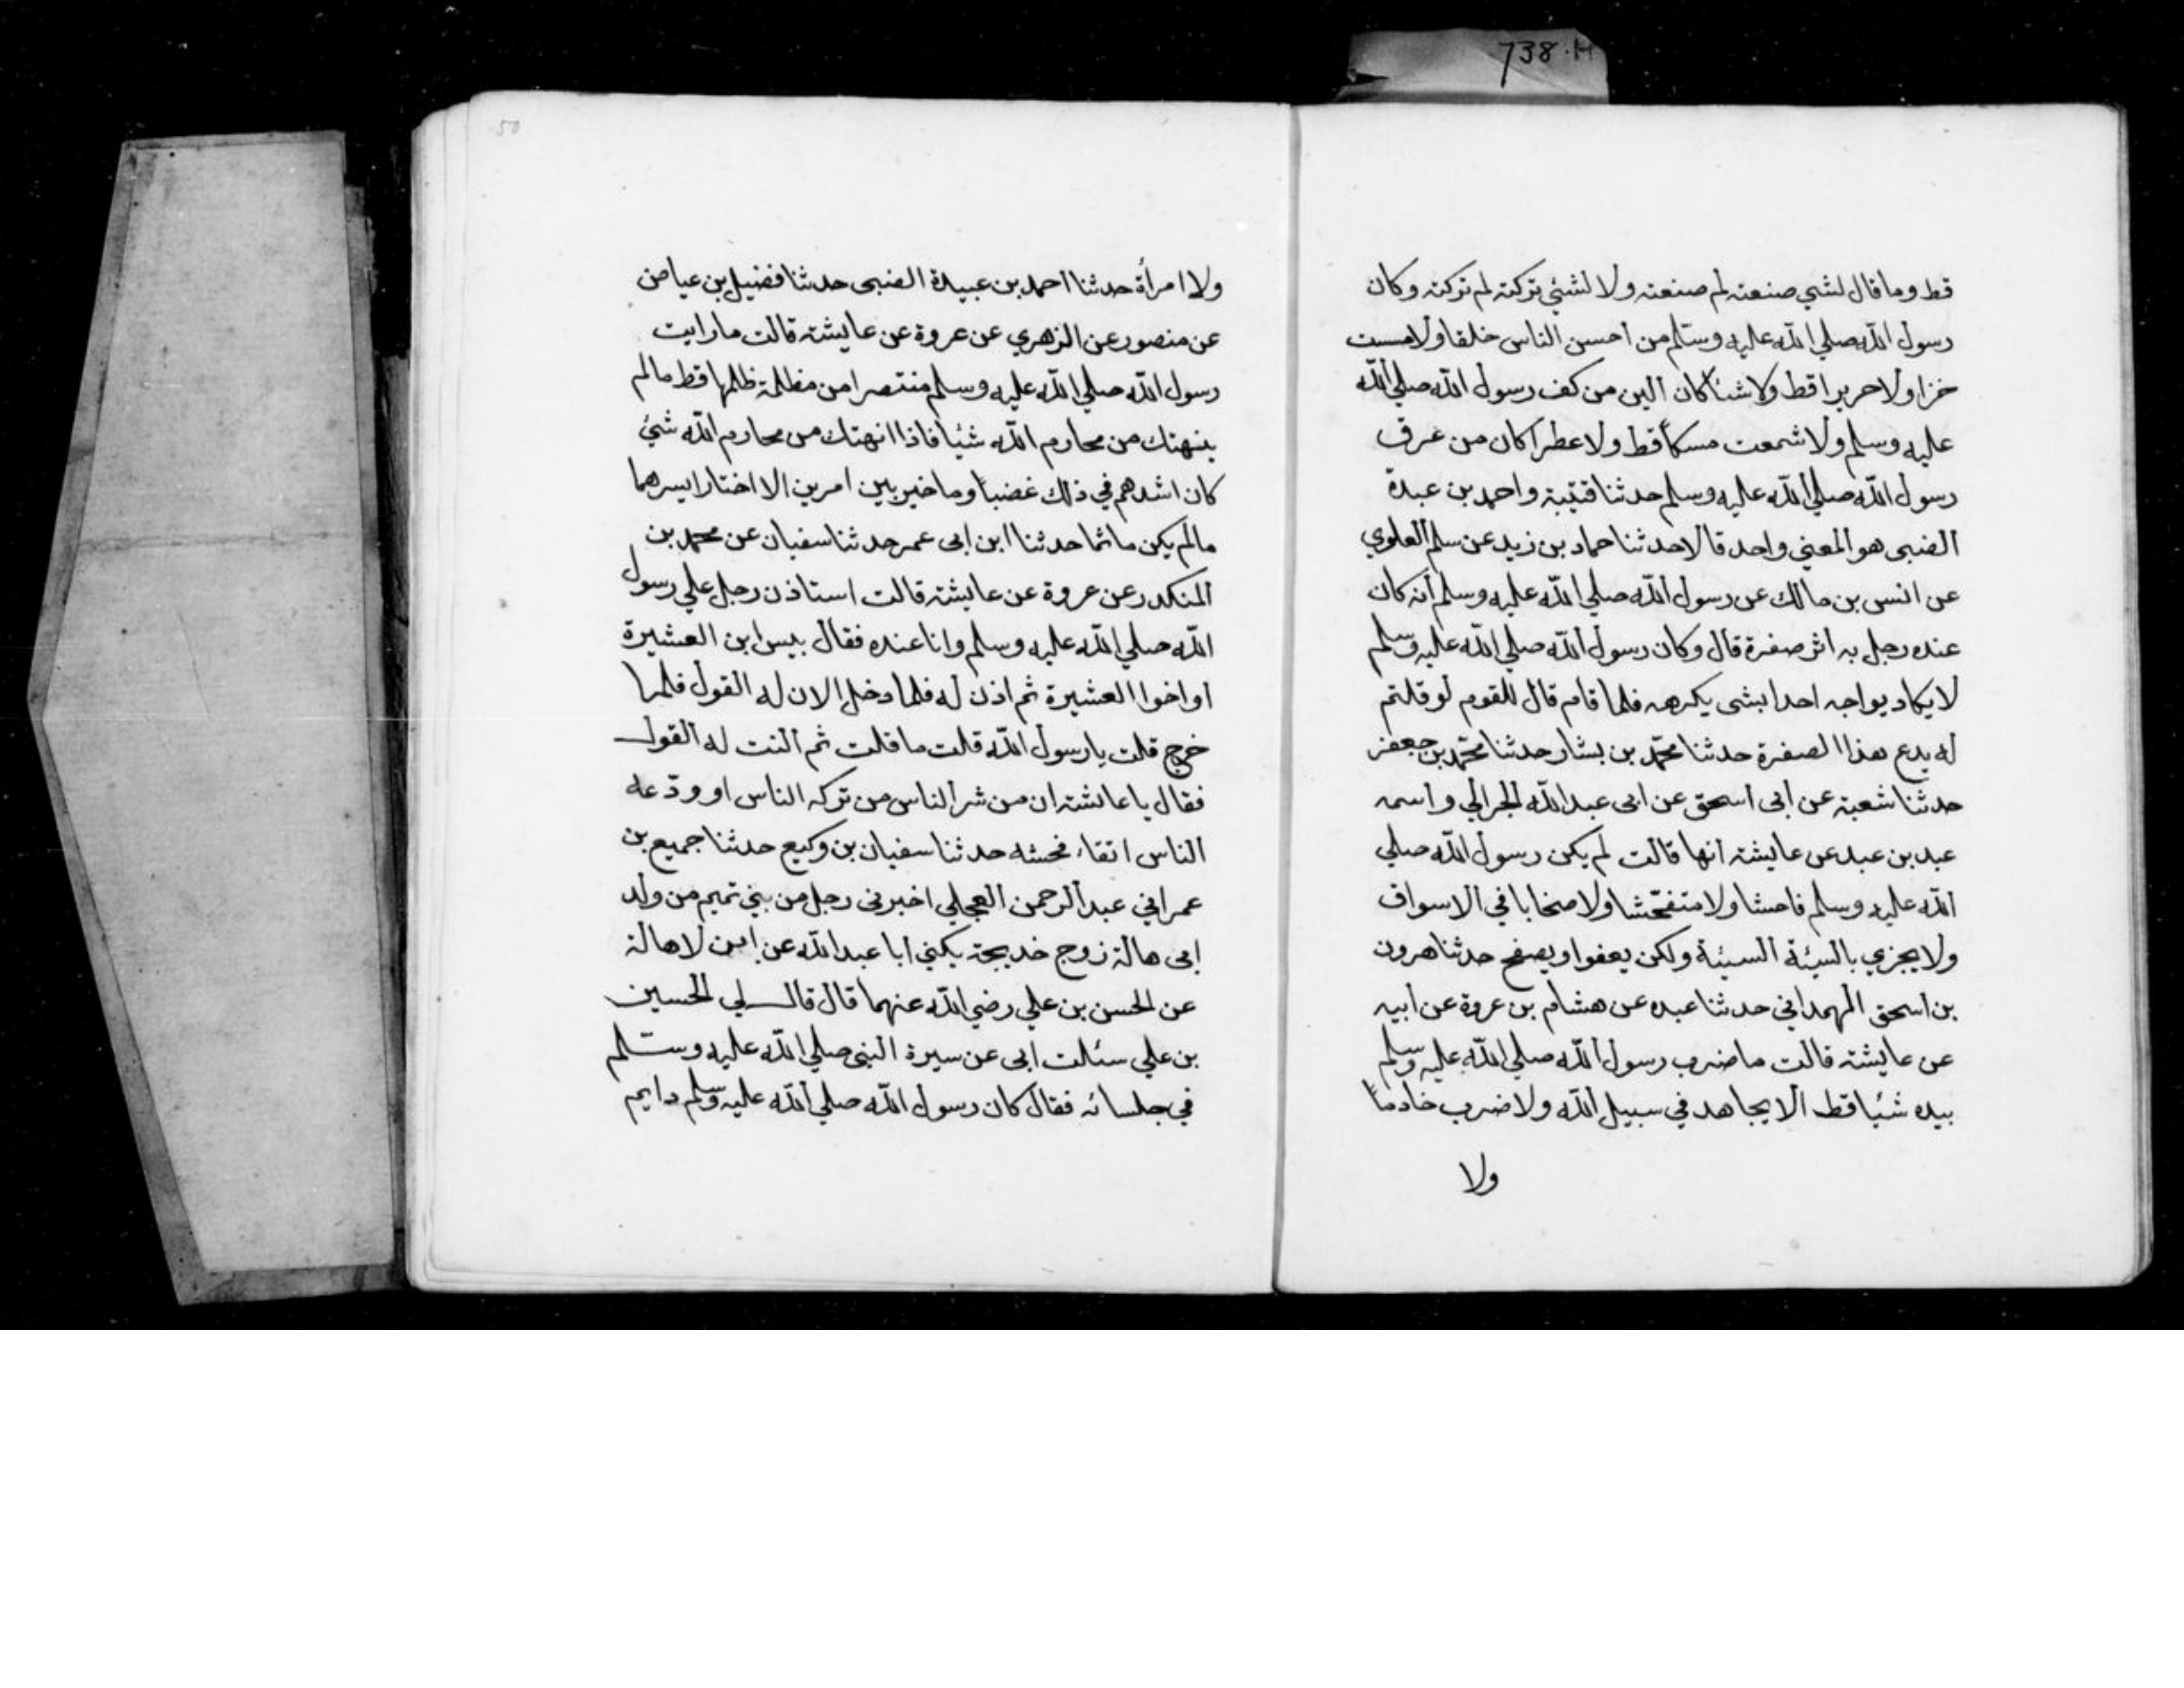 738.H
قط وما قال لشي صنعته لم صنعته ولا لشئي تركته لم تركته وكان
رسول الله صلي الله عليه وسلم من احسن الناس خلقا ولا مست
خزا ولا حريرا قط ولا شئا كان ألين من كف رسول الله صلي الله
عليه وسلم ولا شممت مسكا قط ولا عطرا كان من عرق
رسول الله صلي الله عليه وسلم حدثنا قتيبة واحمد بن عبدة
الضبى هو المعني واحد قالا حدثنا حماد بن زيد عن سلم العلوي
عن انس بن مالك عن رسول الله صلي الله عليه وسلم أنه كان
عنده رجل به اثر صفرة قال وكان رسول الله صلي الله عليه وسلم
لا يكاد يواجه احدا بشى يكرهه فلما قام قال للقوم لو قلتم
له يدع هذا الصفرة حدثنا محمد بن بشار حدثنا محمد بن جعفر
حدثنا شعبة عن ابى اسحق عن ابى عبد الله الجدالي واسمه
عبد بن عبد عن عايشة انها قالت لم يكن رسول الله صلي
الله عليه وسلم فاحشا ولا متفحشا ولا صخابا في الاسواق
ولا يجزي بالسيئة السيئة ولكن يعفوا ويصفح حدثنا هرون
بن اسحق الهمداني حدثنا عبده عن هشام بن عروة عن ابيه
عن عايشة قالت ما ضرب رسول الله صلي الله عليه وسلم
بيده شئيا قط الا يجاهد في سبيل الله ولا ضرب خادما
ولا
50
ولا امرأة حدثنا احمد بن عبيدة الضبى حدثنا فضيل بن عياض
عن منصور عن الزهري عن عروة عن عايشة قالت ما رايت
رسول الله صلي الله عليه وسلم منتصرا من مظلمة ظلمها قط مالم
ينهتك من محارم الله شئيا فاذا انهتك من محارم الله شئ
كان اشدهم في ذلك غضبا وما خير بين امرين الا اختار ايسرهما
مالم يكن ماثما حدثنا ابن ابى عمر حدثنا سفيان عن محمد بن
المنكدر عن عروة عن عايشة قالت استاذن رجل علي رسول
الله صلي الله عليه وسلم وانا عنده فقال بيس ابن العشيرة
او اخوا العشيرة ثم اذن له فلما دخل الان له القول فلما
خرج قلت يا رسول الله قلت ما قلت ثم النت له القول
فقال يا عائشة ان من شر الناس من تركه الناس او ودعه
الناس اتقاء فحشه حدثنا سفيان بن وكيع حدثنا جميع بن
عمر اني عبد الرحمن العجلي اخبرنى رجل من بني تميم من ولد
ابى هالة زوج خديجة يكني ابا عبد الله عن ابن لا هالة
عن الحسن بن علي رضي الله عنهما قال قال لي الحسين
بن علي سئالت ابى عن سيرة النبى صلي الله عليه وسلم
في جلسائه فقال كان رسول الله صلي الله عليه وسلم دايم